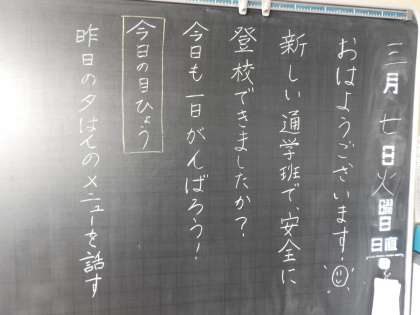 三月七日火曜日
日直
おはようございます!
新しい通学班で、安全に
登校できましたか?
今日も一日がんばろう!
今日の目ひょう
昨日の夕はんのメニューを話す